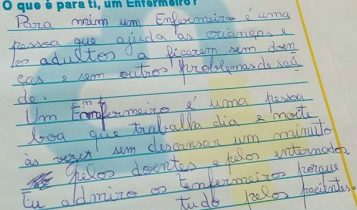 O que é para ti, um Enfermeiro?
Para mim um Enfermeiro é uma
pessoa que ajuda as crianças e
os adultos a ficarem sem doen
ças e sem outros problemas de saú
de.
Um Enfermeiro é uma pessoa
boa que trabalha dia e noite
às vezes sem descansar um minuto
pelos doentes e pelos internados
Eu admiro os Enfermeiros porque
tudo pelos pacientes